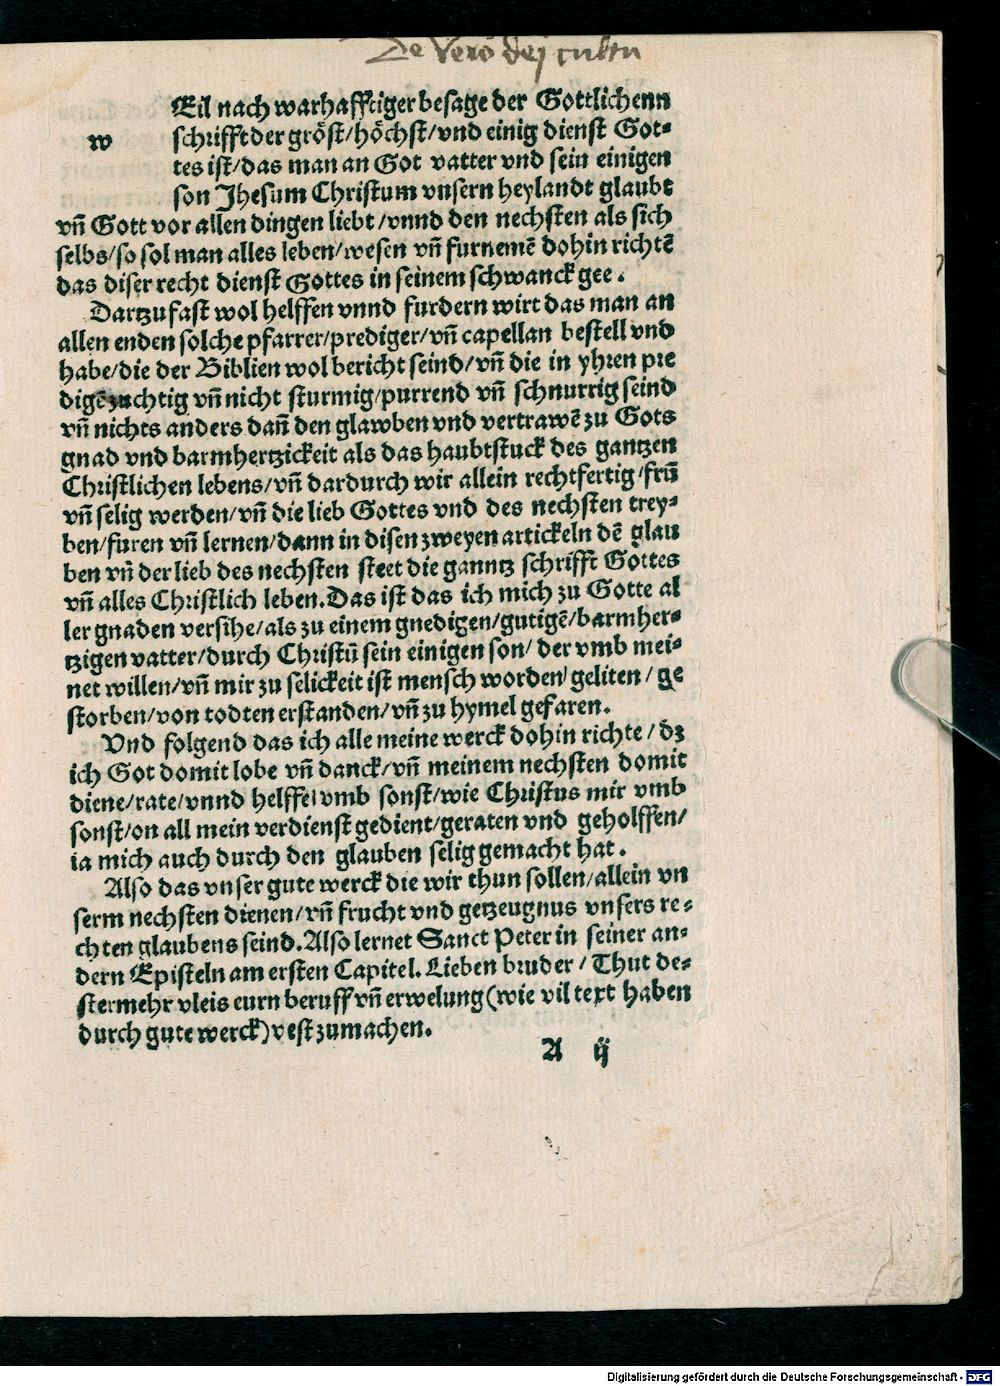 De vero dej cultu
w
Eil nach warhafftiger besage der Gottlichenn
schrifft der gröst/höchst/vnd einig dienst Got⸗
tes ist/das man an Got vatter vnd sein einigen
son Jhesum Christum vnsern heylandt glaubt
vn̄ Gott vor allen dingen liebt/vnnd den nechsten als sich
selbs/so sol man alles leben/wesen vn̄ furnemē dohin richtē
das diser recht dienst Gottes in seinem schwanck gee.
Dartzu fast wol helffen vnnd furdern wirt das man an
allen enden solche pfarrer/prediger/vn̄ capellan bestell vnd
habe/die der Biblien wol bericht seind/vn̄ die in yhren pre
digē zuchtig vn̄ nicht sturmig/purrend vn̄ schnurrig seind
vn̄ nichts anders dan̄ den glawben vnd vertrawē zu Gots
gnad vnd barmhertzickeit als das haubtstuck des gantzen
Christlichen lebens/vn̄ dardurch wir allein rechtfertig/frū
vn̄ selig werden/vn̄ die lieb Gottes vnd des nechsten trey⸗
ben/furen vn̄ lernen/dann in disen zweyen artickeln dē glau
ben vn̄ der lieb des nechsten steet die ganntz schrifft Gottes
vn̄ alles Christlich leben. Das ist das ich mich zu Gotte al
ler gnaden versihe/als zu einem gnedigen/gutigē/barmher⸗
tzigen vatter/durch Christū sein einigen son/der vmb mei⸗
net willen/vn̄ mir zu selickeit ist mensch worden/geliten/ge
storben/von todten erstanden/vn̄ zu hymel gefaren.
Vnd folgend das ich alle meine werck dohin richte/dz
ich Got domit lobe vn̄ danck/vn̄ meinem nechsten domit
diene/rate/vnnd helffe/vmb sonst/wie Christus mir vmb
sonst/on all mein verdienst gedient/geraten vnd geholffen/
ia mich auch durch den glauben selig gemacht hat.
Also das vnser gute werck die wir thun sollen/allein vn
serm nechsten dienen/vn̄ frucht vnd getzeugnus vnsers re⸗
chten glaubens seind. Also lernet Sanct Peter in seiner an⸗
dern Episteln am ersten Capitel. Lieben bruder/Thut de⸗
stermehr vleis eurn beruff vn̄ erwelung (wie vil text haben
durch gute werck) vest zumachen.
A ij
Digitalisierung gefördert durch die Deutsche Forschungsgemeinschaft - DFG